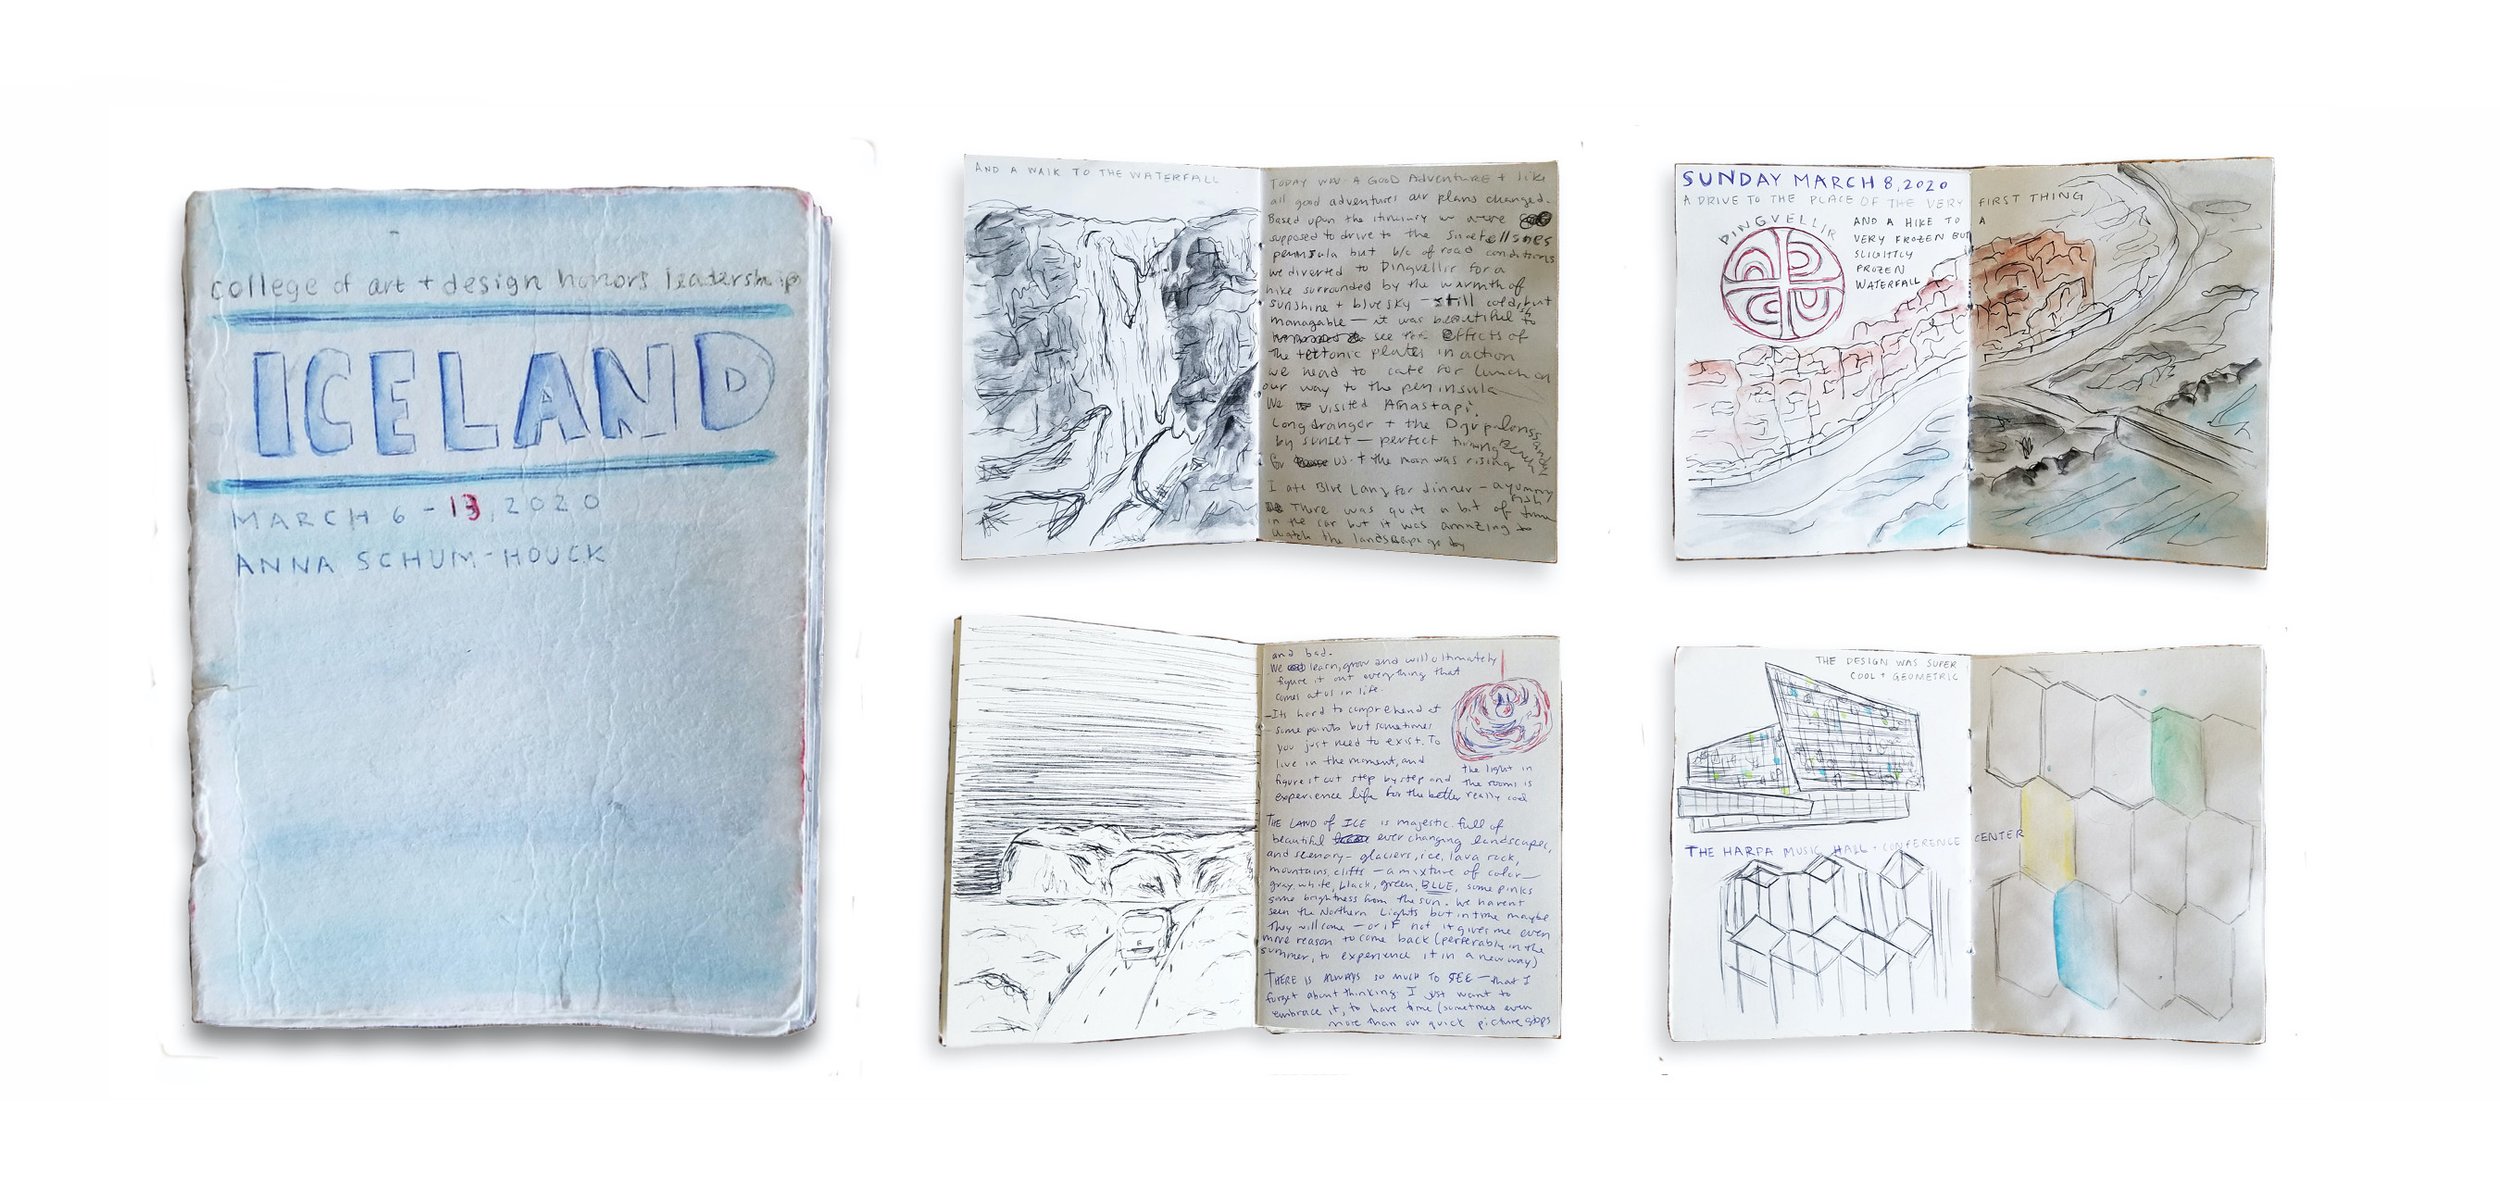 college of art + design honors leadership
ICELAND
MARCH 6 - 13, 2020
ANNA SCHUM-HOUCK
AND A WALK TO THE WATERFALL
TODAY WAS A GOOD ADVENTURE + like
all good adventures our plans changed.
Based upon the itinirary we were
supposed to drive to the Snaefellsnes
peninsula but b/c of road conditions
we diverted to Dingvellir for a
hike surrounded by the warmth of
sunshine + blue sky - still coldish, but
managable - it was beautiful to
see the effects of
the tectonic plates in action
we head to cafe for lunch on
our way to the peninsula
We visited Arnastapi,
Longdranger + the Djupalonssandur Beach
by sunset - perfect timing
for us + the moon was rising
I ate Blue Lang for dinner - a yummy fish
There was quite a bit of time
in the car but it was amazing to
watch the landscape go by
SUNDAY MARCH 8, 2020
A DRIVE TO THE PLACE OF THE VERY FIRST THING
DINGVELLIR
AND A HIKE TO A
VERY FROZEN BUT
SLIGHTLY
FROZEN
WATERFALL
and bad.
We learn, grow and will ultimately
figure it out everything that
comes at us in life
- Its hard to comprehend at
some points but sometimes
you just need to exist. To
live in the moment, and
figure it out step by step and
experience life for the better
the light in
the rooms is
really cool
THE LAND of ICE is majestic. full of
beautiful ever changing landscapes,
and scenery - glaciers, ice, lava rock,
mountains, cliffs - a mixture of color -
gray, white, black, green, BLUE, some pinks
some brightness from the sun. We havent
seen the Northern Lights but in time maybe
they will come - or if not it gives me even
more reason to come back (perferably in the
summer, to experience it in a new way)
THERE IS ALWAYS SO MUCH TO SEE - that I
forget about thinking. I just want to
embrace it, to have time (sometimes even
more than our quick picture stops
THE DESIGN WAS SUPER
COOL + GEOMETRIC
THE HARPA MUSIC HALL + CONFERENCE CENTER